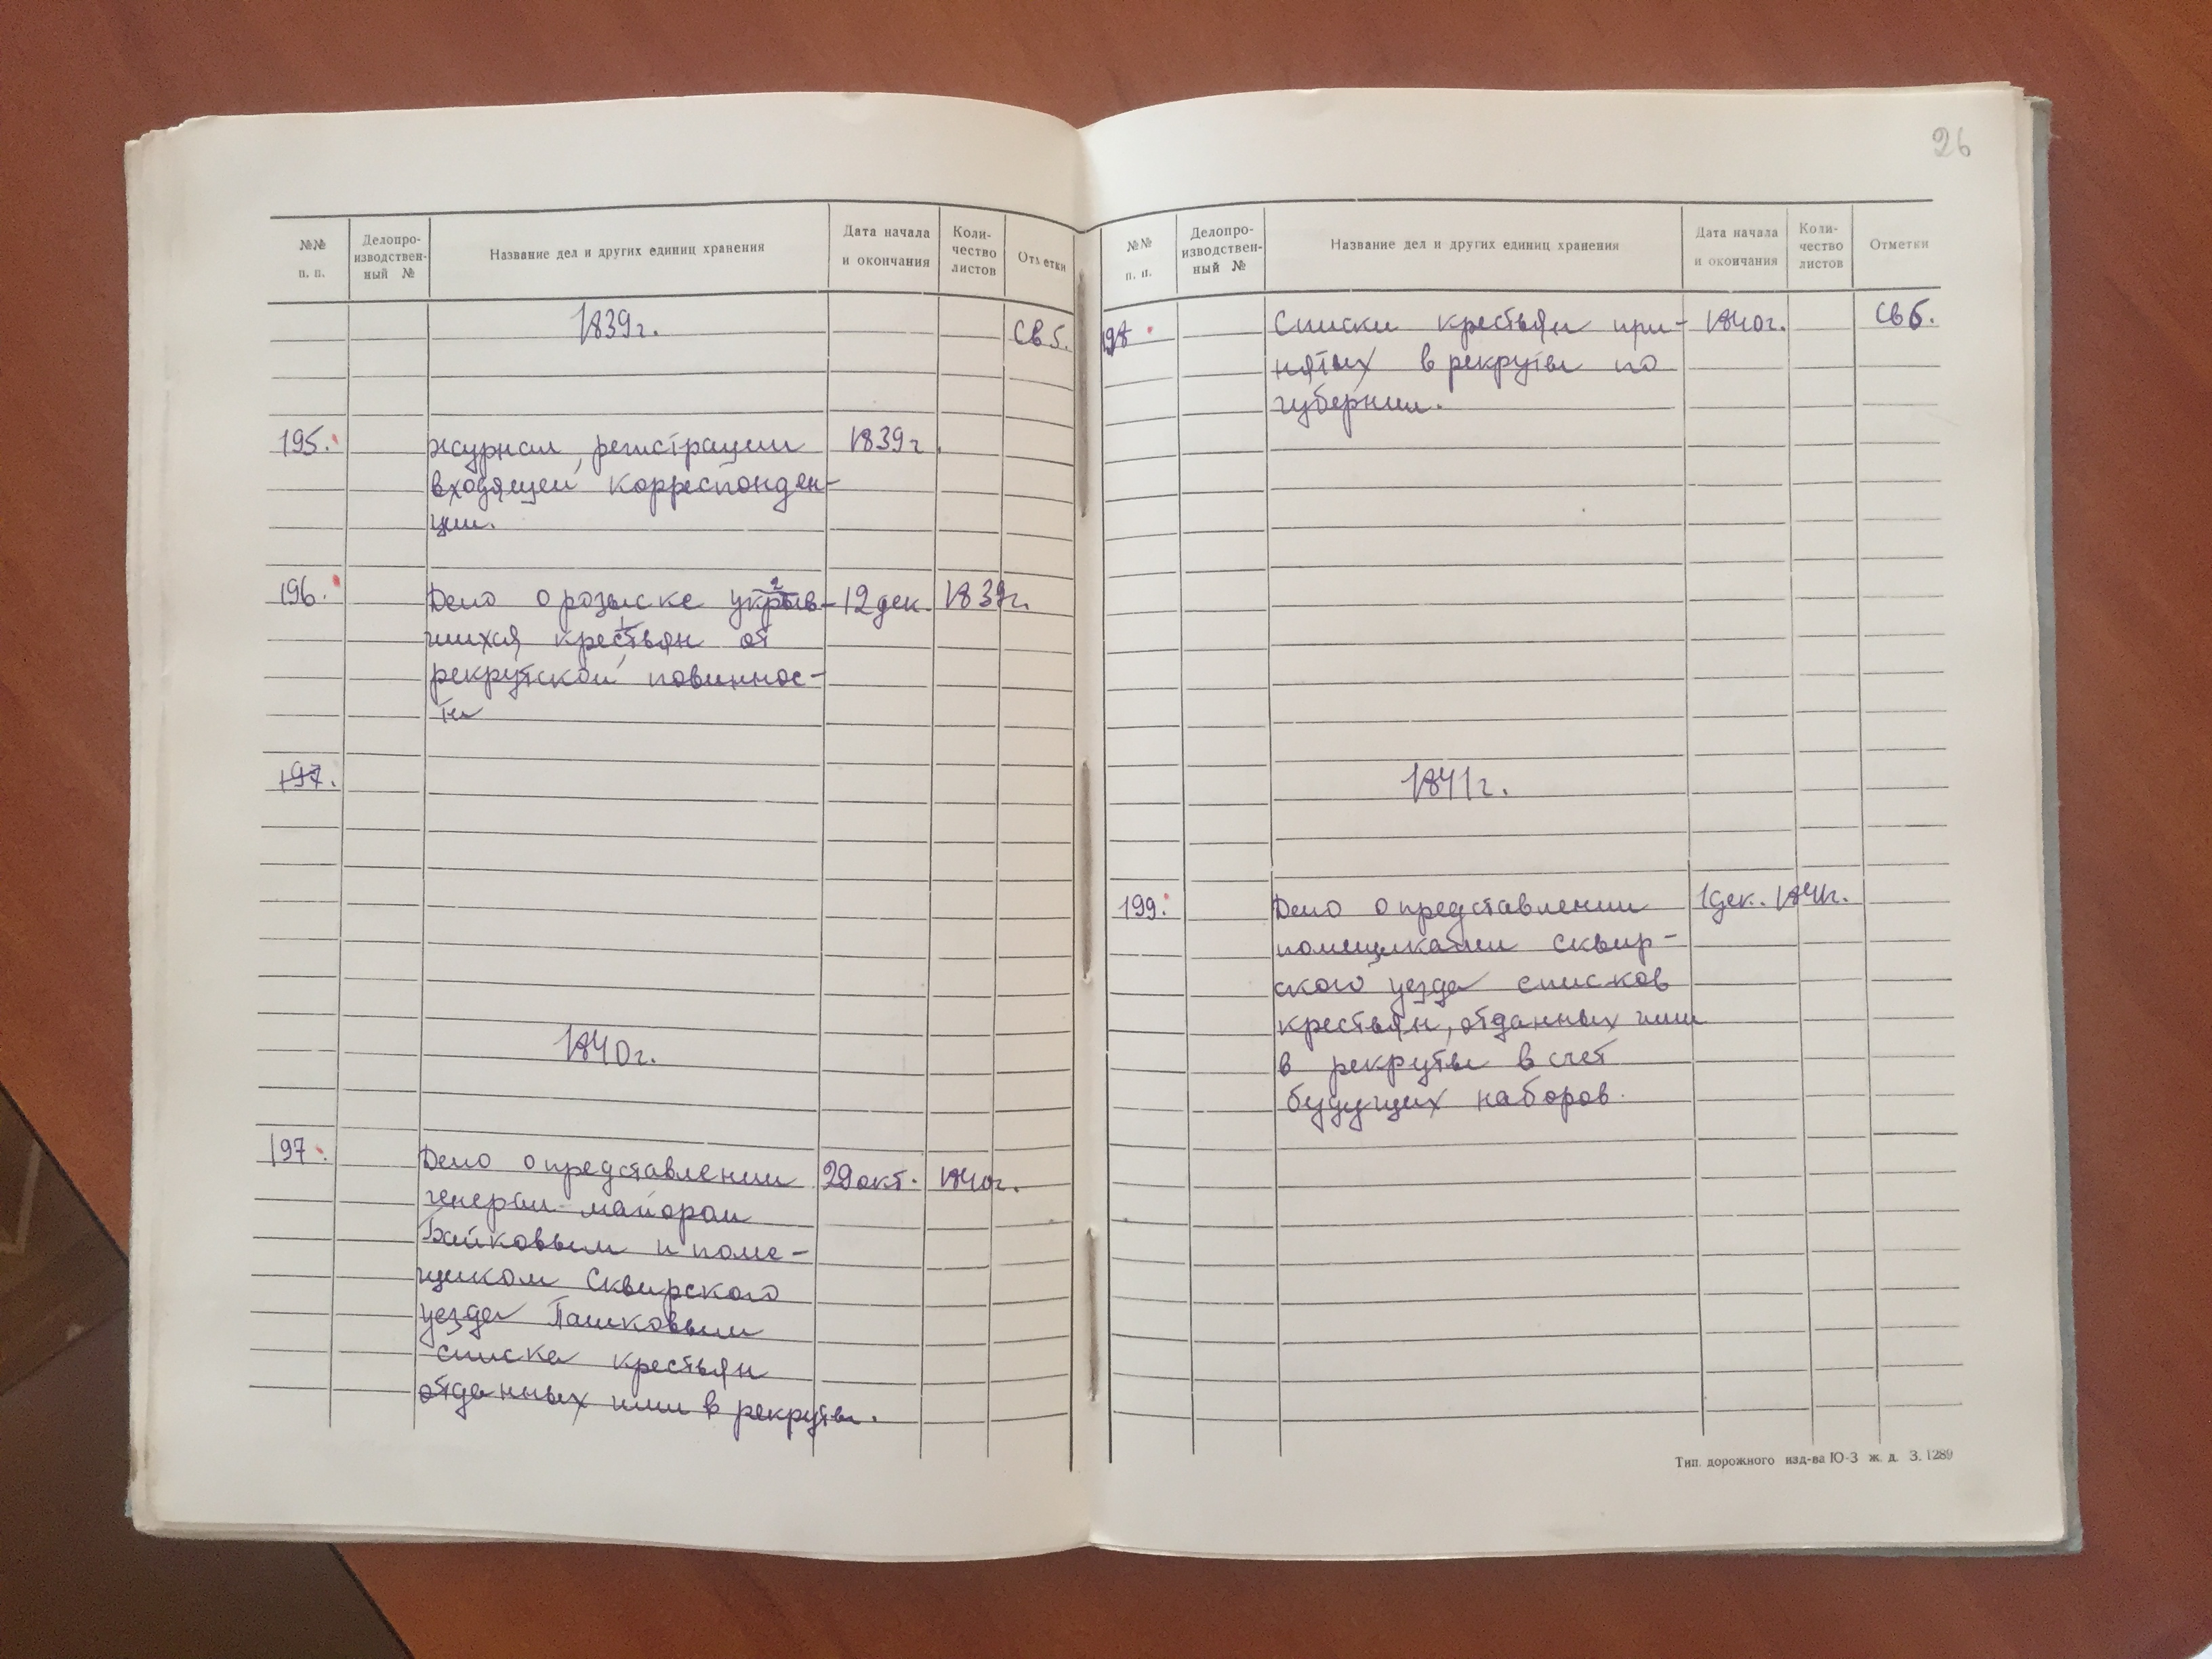 26
№№ п. п.
Делопро-
изводствен-
ный №
Название дел и других единиц хранения
Дата начала
и окончания
Коли-
чество
листов
Отметки
1839г.
Св 5.
195.
журнал регистрации
1839г.
входящей корреспонден-
ции.
196.
Дело о розыске укрыв-
2
12 дек. 1839г.
1
шихся крестьян от
рекрутской повиннос-
ти
197.
1840г.
197.
Дело о представлении
29 окт. 1840г.
генерал майором
Байковым и поме-
щиком Сквирского
уезда Пашковым
списка крестьян
отданных ими в рекруты.
№№ п. п.
Делопро-
изводствен-
ный №
Название дел и других единиц хранения
Дата начала
и окончания
Коли-
чество
листов
Отметки
198.
Списки крестьян при-
1840г.
Св 5.
нятых в рекруты по
губернии.
1841г.
199.
Дело о представлении
1 дек. 1841г.
помещиками Сквир-
ского уезда списков
крестьян, отданных ими
в рекруты в счет
будущих наборов.
Тип. дорожного изд-ва Ю-З ж. д. З. 1289